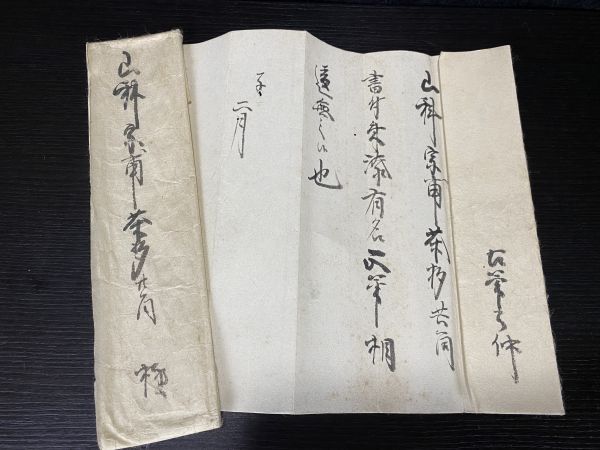 古筆了仲
山科宗甫茶杓共筒
書付朱漆有名正筆相
違無之候也
二月
山科宗甫茶杓共筒
極